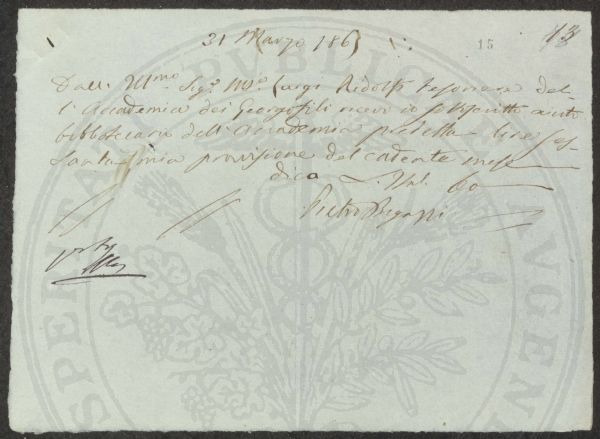 31 Marzo 1865
15
13
Dall' Ill.mo Sig.r M.se Luigi Ridolfi tesoriere del-
l'Accademia dei Georgofili ricevo io sottoscritto aiuto
bibliotecario dell'Accademia predetta lire ses-
santa mia provvisione del cadente mese
dico L. Ital. 60
Pietro Bigazzi
PUBLIC